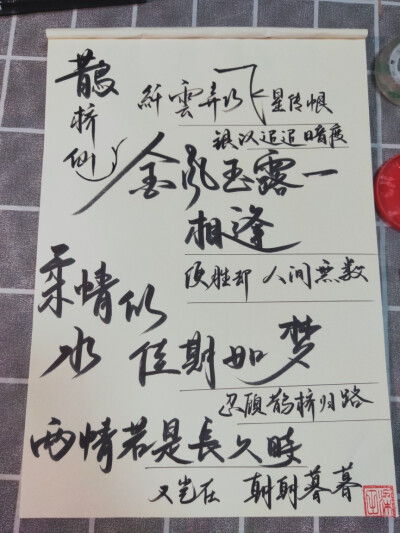 鵲桥仙
纤雲弄巧 飞星传恨
银汉迢迢暗度
金风玉露一
相逢
便胜却 人间无数
柔情似
水 佳期如梦
忍顾鹊桥归路
两情若是長久時
又岂在 朝朝暮暮